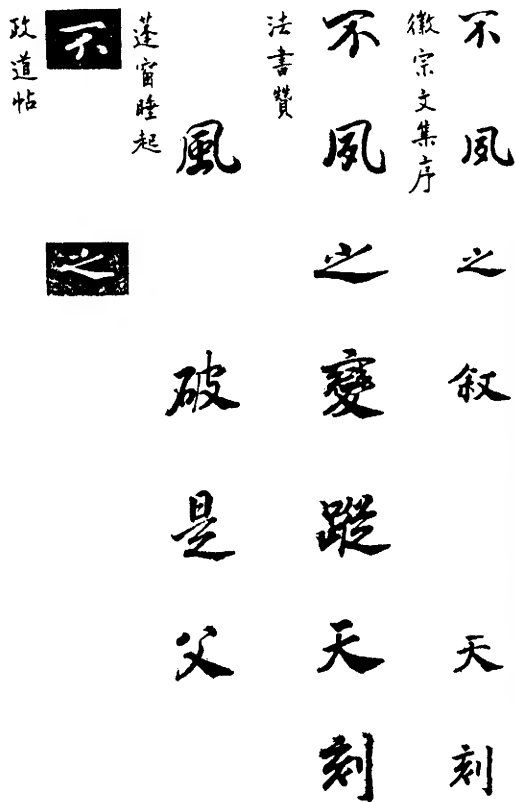 不夙之叙天刻
徽宗文集序
不夙之變蹤天刻
法書贊
風破是父
蓬窗睡起
不之
政道帖